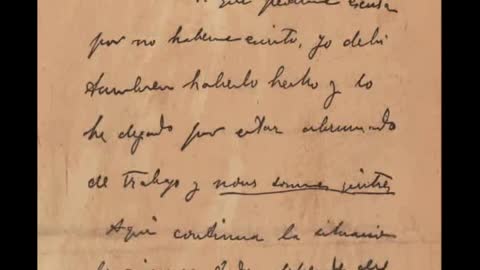 que pedirme escusa
por no haberme escrito, yo debí
tambien haberlo hecho y lo
he dejado por estar abrumado
de trabajo y nous sommes quittes
Aquí continua la situacion